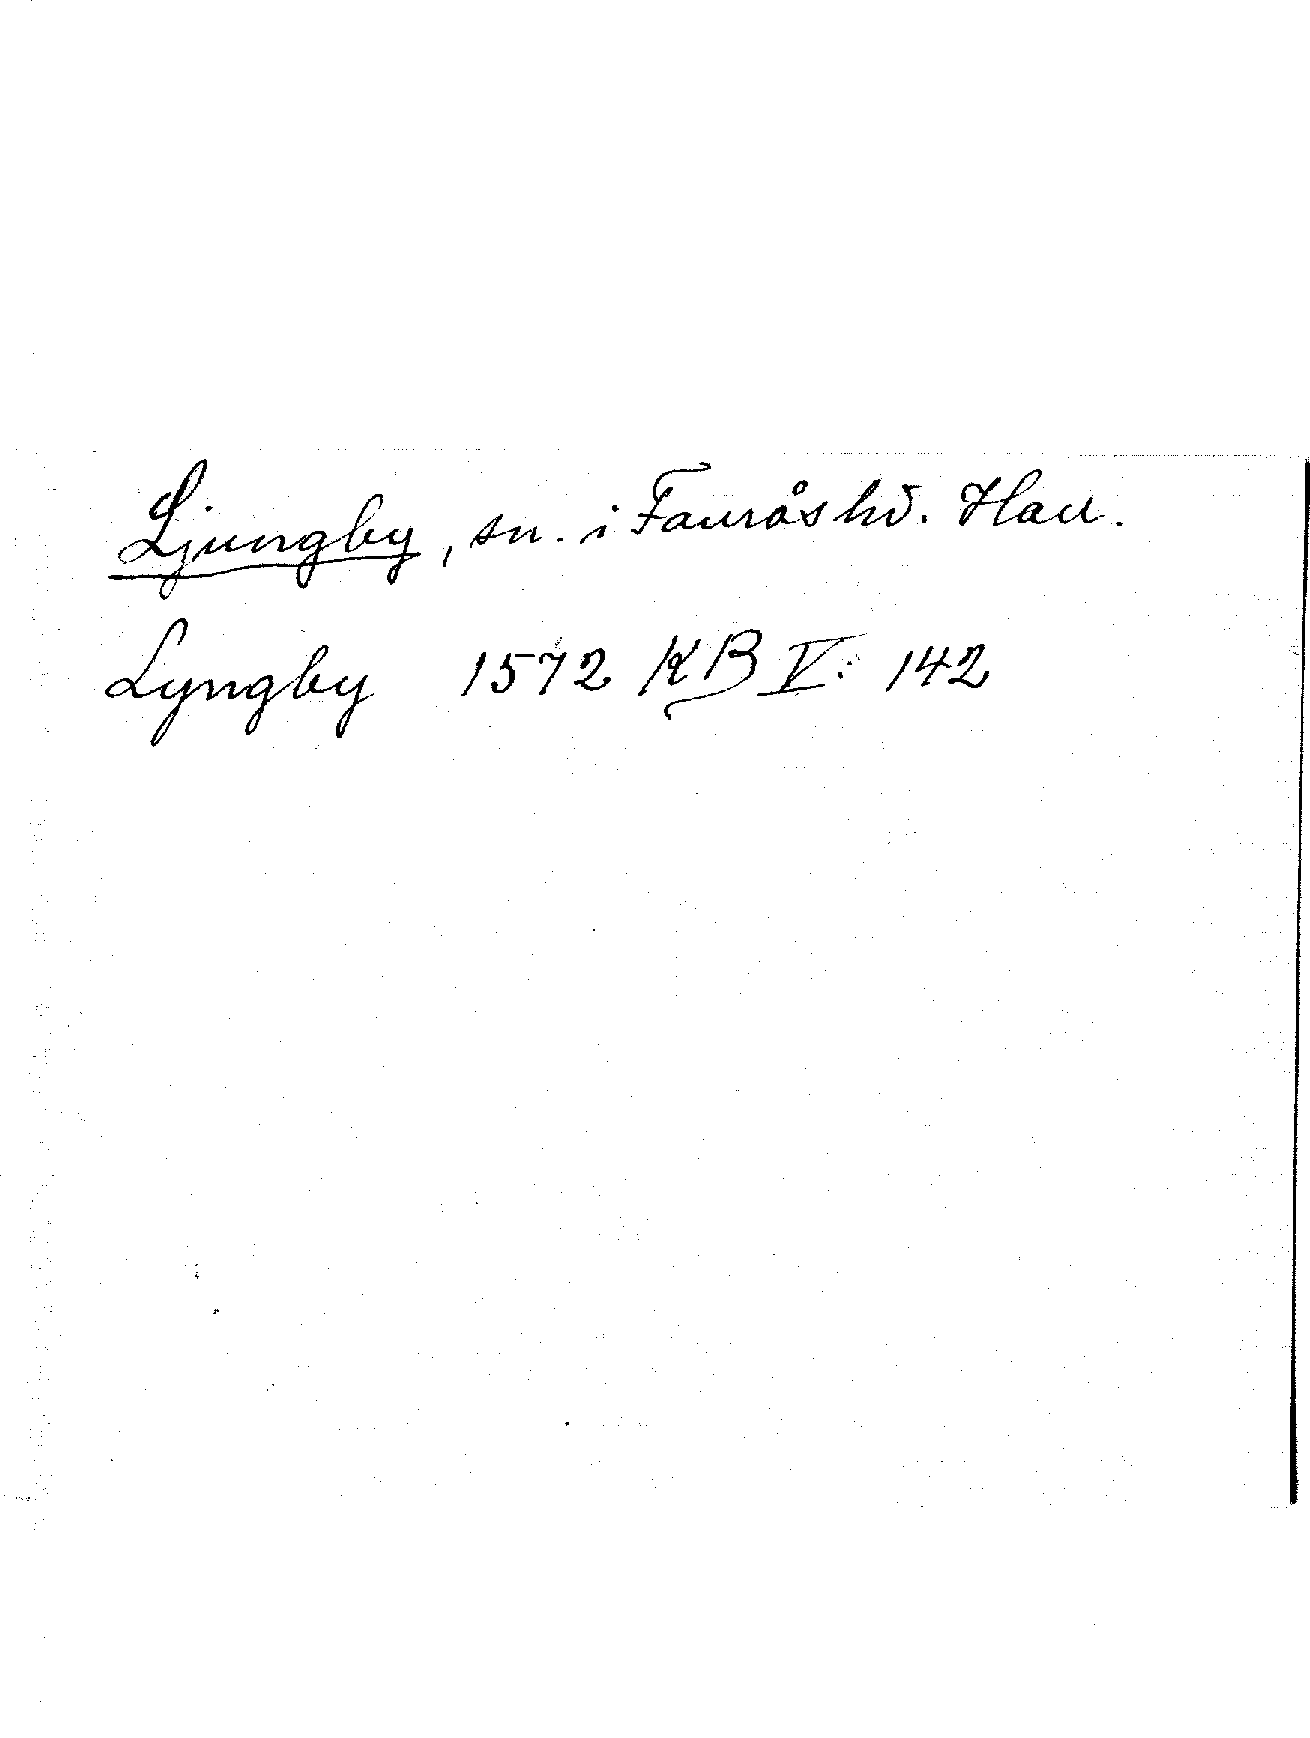 Ljungby, sn. i Faurås hd. Hall.
Lyngby 1572 KB V: 142